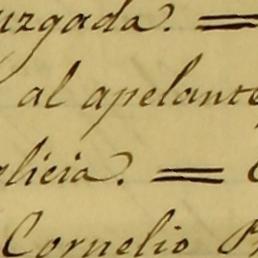 uzgada. =
al apelante
licia. =
Cornelio